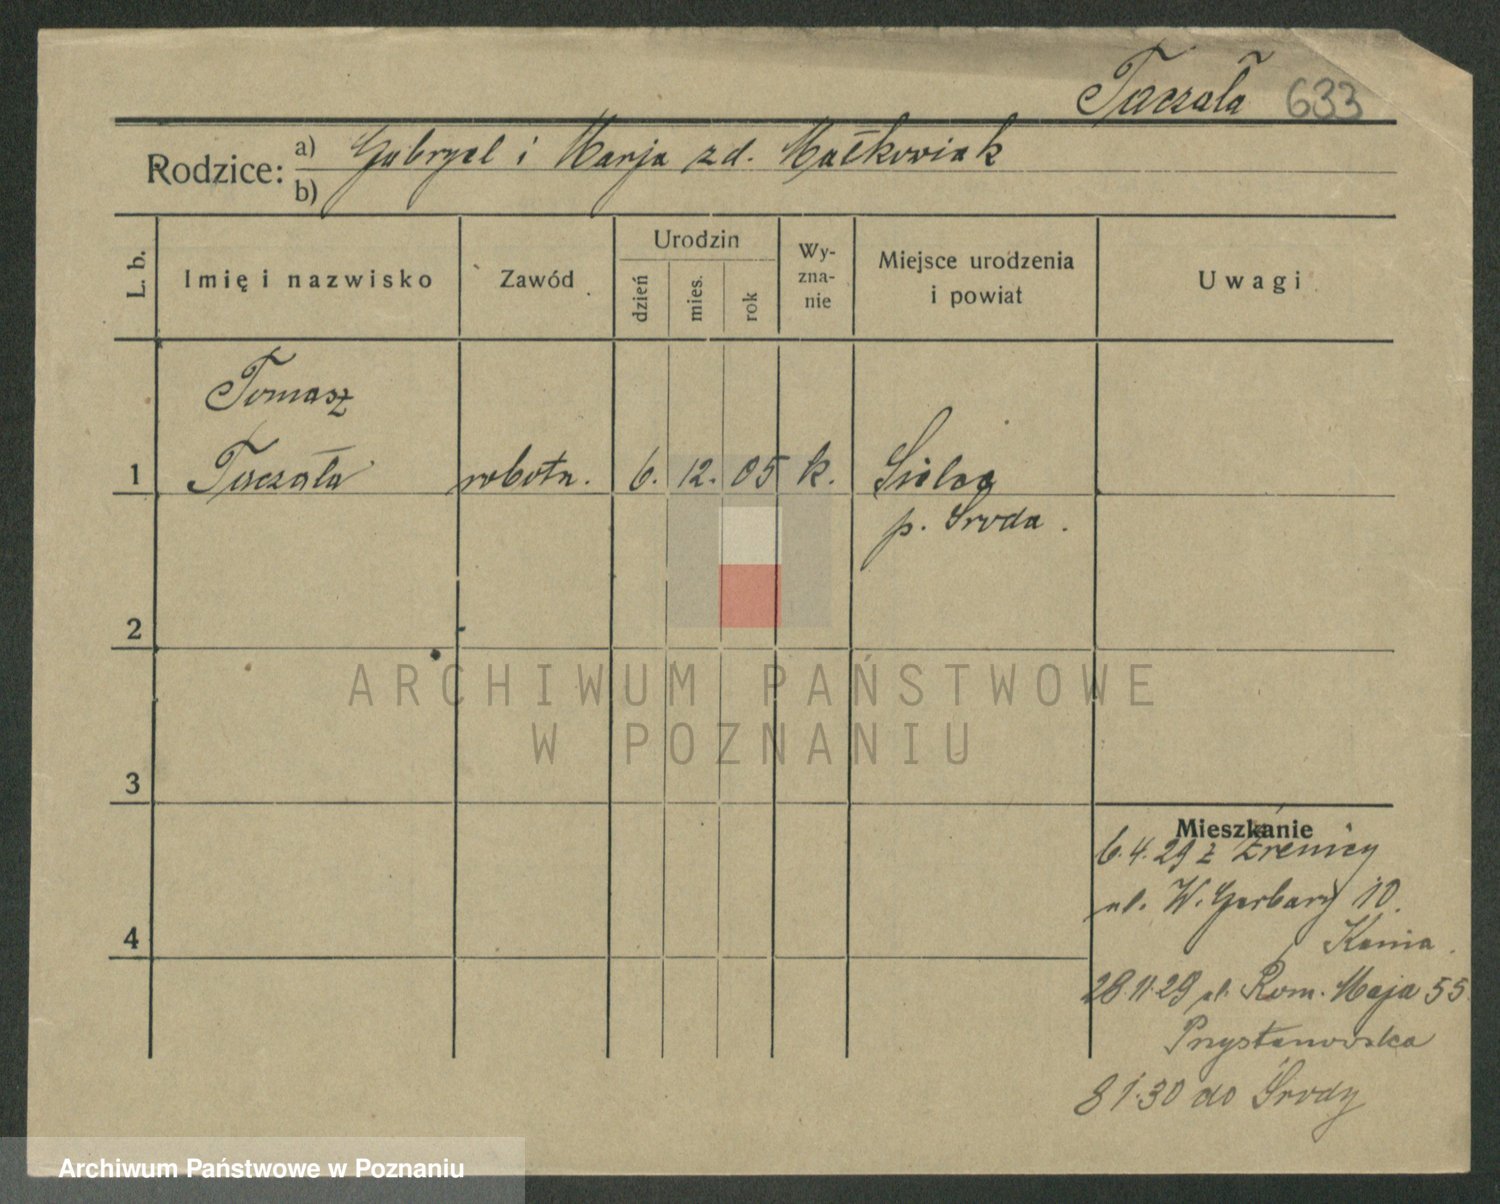 Taczała 633
Rodzice: a) Gabryel i Marja zd. Małkowiak
b)
L. b.
Imię i nazwisko
Zawód
Urodzin
dzień
mies.
rok
Wy-
zna-
nie
Miejsce urodzenia
i powiat
Uwagi
Tomasz
1 Taczała robotn. 6. 12. 05 k. Sielca
p. Środa.
2
3
4
Mieszkanie
6.4.29 z Źrenicy
ul. W. Garbary 10.
Kania.
28.11.29 ul. Rom. Maja 55
Przystanowska
8 1.30 do Środy
ARCHIWUM PAŃSTWOWE
W POZNANIU
Archiwum Państwowe w Poznaniu